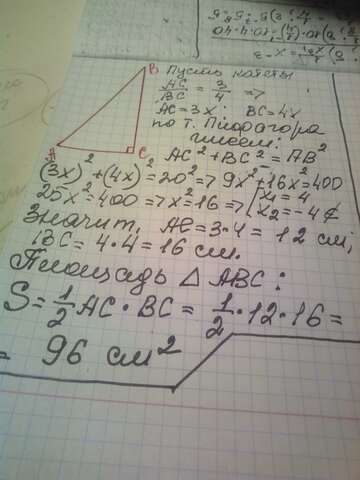 B
A
C
Пусть катеты
AC/BC = 3/4 =>
AC = 3x; BC = 4x
по т. Пифагора
имеем:
AC² + BC² = AB²
(3x)² + (4x)² = 20² => 9x² + 16x² = 400
25x² = 400 => x² = 16 => [x₁ = 4
x₂ = -4 ∉
Значит, AC = 3·4 = 12 см;
BC = 4·4 = 16 см.
Площадь △ ABC:
S = 1/2 AC · BC = 1/2 · 12 · 16 =
= 96 см²